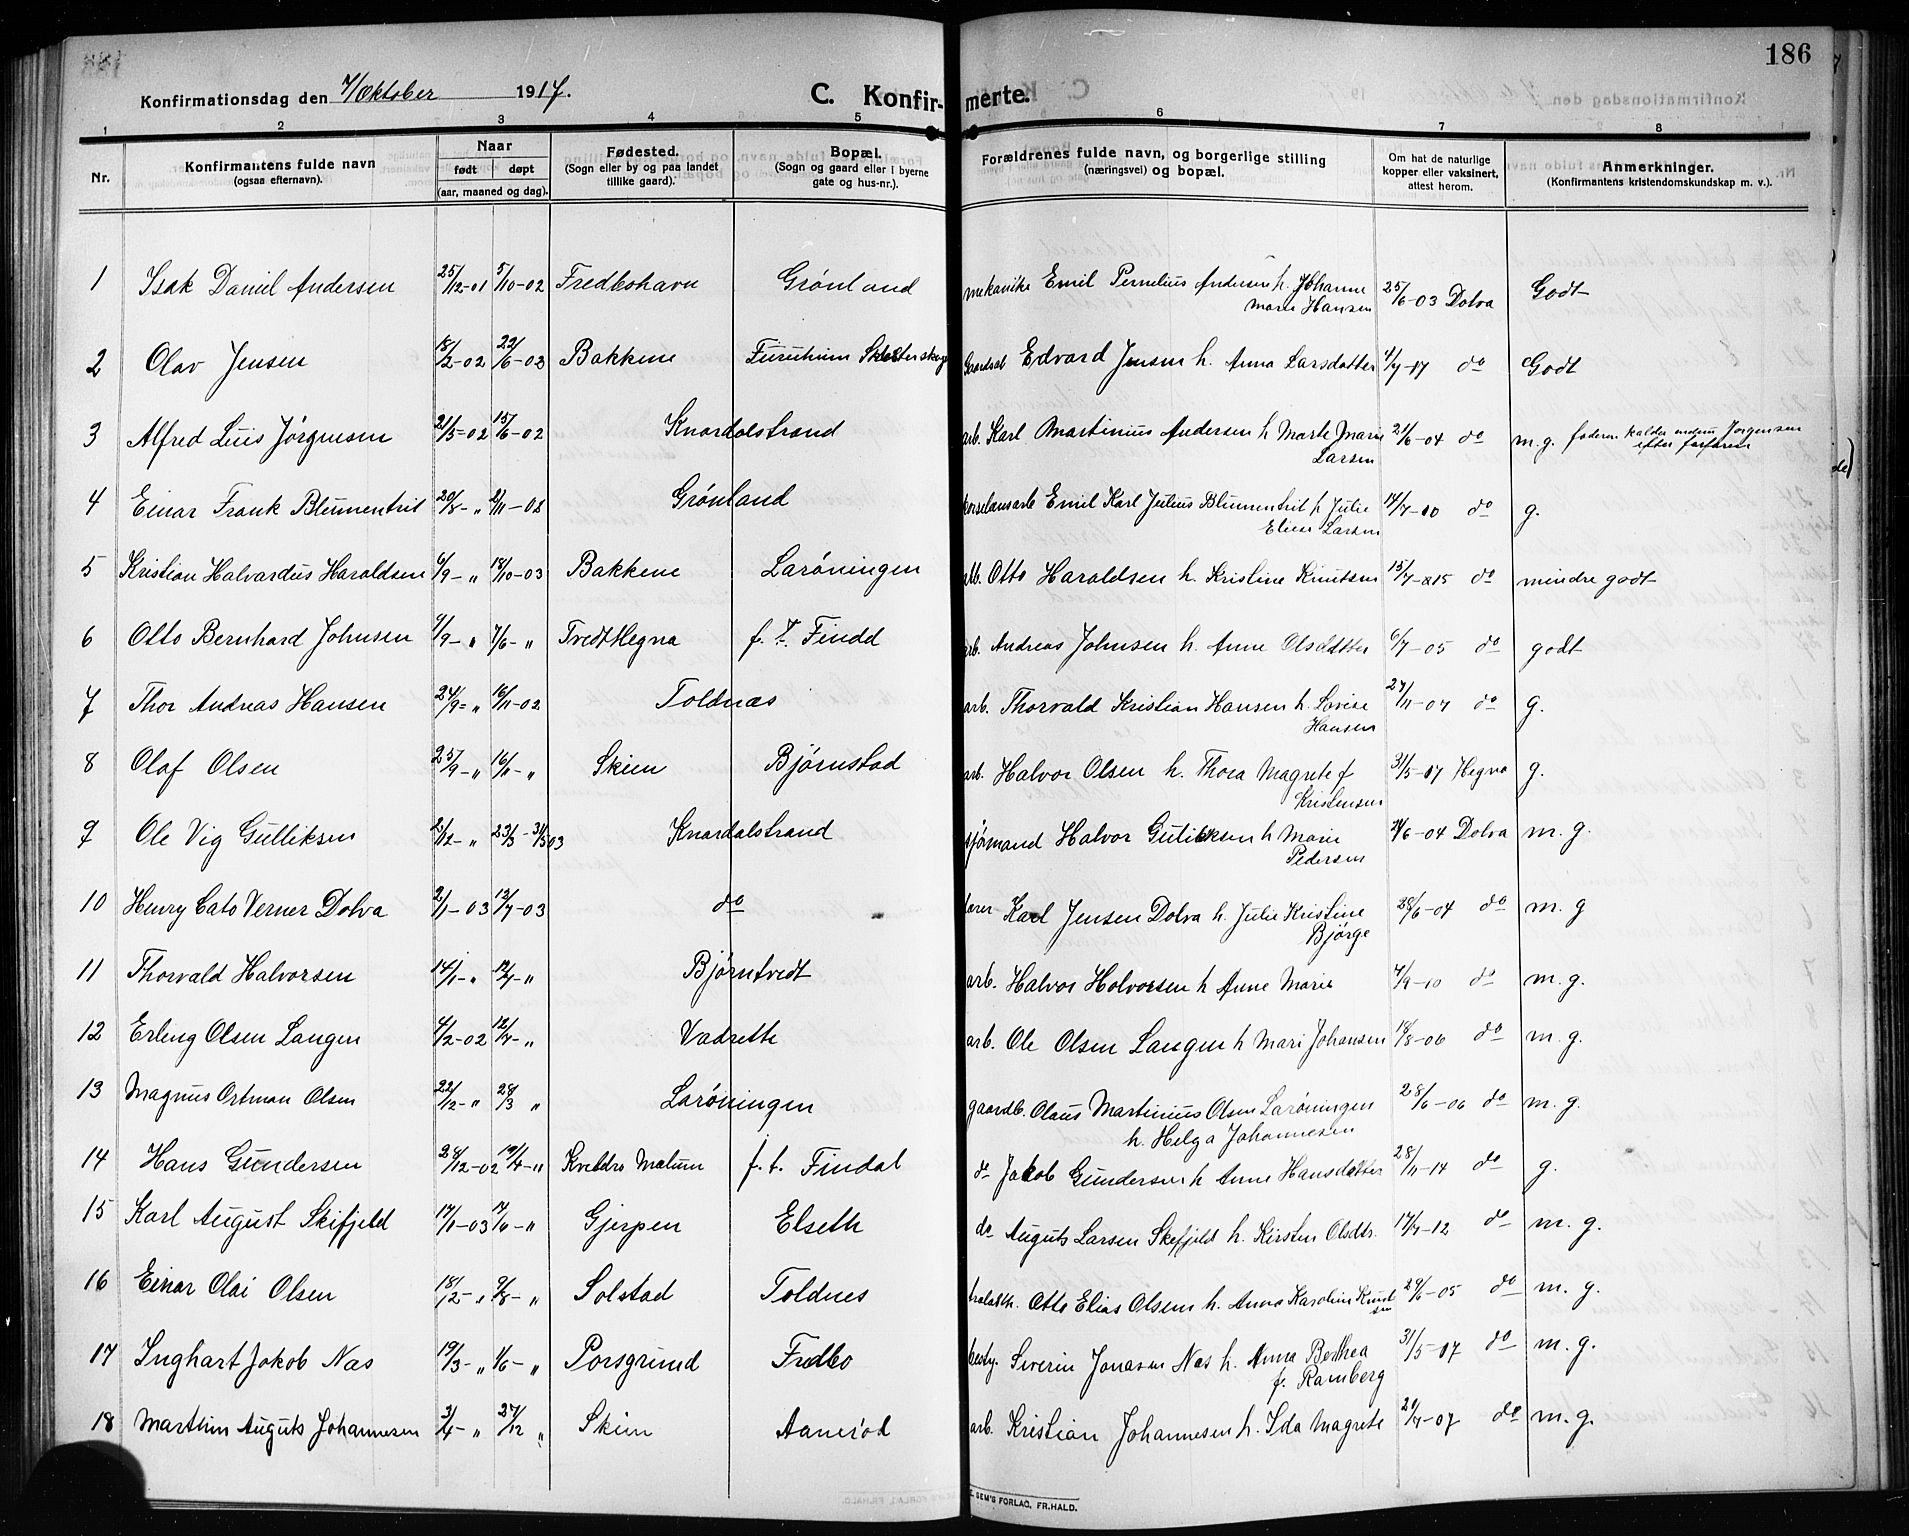 186
Konfirmationsdag den 7/Oktober 1917.
C. Konfirmerte.
1 2 3 4 5 6 7 8
Nr. Konfirmantens fulde navn (ogsaa efternavn). Naar født døpt (aar, maaned og dag). Fødested. (Sogn eller by og paa landet tillike gaard). Bopæl. (Sogn og gaard eller i byerne gate og hus-nr.). Forældrenes fulde navn, og borgerlige stilling (næringsvei) og bopæl. Om hat de naturlige kopper eller vaksinert, attest herom. Anmerkninger. (Konfirmantens kristendomskundskap m. v.).
1 Isak Daniel Andersen 25/12-01 5/10-02 Fredbohavn Grönland mekanike Emil Pernelius Andersen h. Johanne Marie Hansen 25/6-03 Dolva Godt
2 Olav Jensen 18/2-02 22/6-03 Bakkene Furuheim Edvard Jensen h. Anna Larsdatter 4/7-17 do Godt
3 Alfred Luis Jörgensen 21/5-02 15/6-02 Knardalstrand arb. Karl Martinius Andersen h Marte Marie Larsen 21/6-04 do m.g. faderen kalder endnu Jørgensen efter farfaren
4 Einar Frank Blumentrit 20/8-" 2/11-02 Grönland Emil Karl Julius Blumentrit h Julie Eliese Larsen 14/7-10 do g.
5 Kristian Halvardus Haraldsen 6/9-" 18/10-03 Bakkene Laröningen arb. Otto Haraldsen h. Kristine Knutsen 15/7-15 do mindre godt
6 Otto Bernhard Johnsen 9/9-" 7/6-" Tvedt Hegna f. t. Findd arb. Andreas Johnsen h. Anne Olsdatter 6/7-05 do godt
7 Thor Andreas Hansen 24/9-" 16/11-02 Toldnas arb. Thorvald Kristian Hansen h. Lovise Hansen 27/11-07 do g.
8 Olaf Olsen 25/9-" 16/11-" Skien Björnstad arb. Halvor Olsen h. Thora Magrete f Kristensen 31/5-17 Hegna g.
9 Ole Vig Gulliksen 2/12-" 23/3-31/5 03 Knardalstrand sjömand Halvor Guliksen h Marie Pedersen 21/6-04 Dolva m.g.
10 Henry Cato Verner Dolva 2/1-03 12/7-03 do lærer Karl Jensen Dolva h. Julie Kristine Björge 28/6-04 do m.g
11 Thorvald Halvorsen 14/1-" 12/4-" Björntvedt arb. Halvor Halvorsen h Anne Marie 4/9-10 do m.g.
12 Erling Olsen Langen 4/2-02 12/4-" Vadrette arb. Ole Olsen Langen h Mari Johansen 18/8-06 do m.g.
13 Magnus Ortman Olsen 22/12-" 28/3 " Laröningen gaardb. Olaus Martinius Olsen Laröningen h. Helga Johannesen 28/6-06 do m.g.
14 Hans Gundersen 28/12-02 19/4-" Melum f. t. Findal do Jakob Gundersen h Anne Hansdatter 28/11-14 do g.
15 Karl August Skifjeld 17/1-03 14/6-" Gjerpen Elseth do Auguts Larsen Skefjeld h. Kirsten Olsdtr. 17/7-12 do m.g.
16 Einar Olai Olsen 18/2-" 9/8-" Solstad Toldnes Otto Elias Olsen h. Anna Karoline Knudsen 29/6-05 do m.g.
17 Inghart Jakob Nas 19/3-" 1/6-" Porsgrund Fredbo Severin Jonasen Nas h. Anna Berthea f. Ramberg 31/5-17 do m.g.
18 Marthin Auguts Johannesen 3/4-" 27/12 " Skien Aanerød arb. Kristian Johannesen h. Ida Magrete 20/7-07 do m.g.
SEM'S FORLAG, FR.HALD.